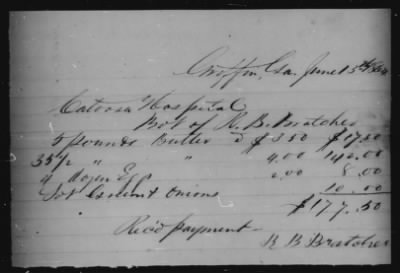 Griffin, Ga. June 15th 1864
Catoosa Hospital
Bot of R. B. Bratcher
5 pounds Butter @ $3.50 $17.50
35 1/2 " " 4.00 142.00
4 Dozen Egg 2.00 8.00
Lot Onions 10.00
$177.50
Rec'd payment
R B Bratcher